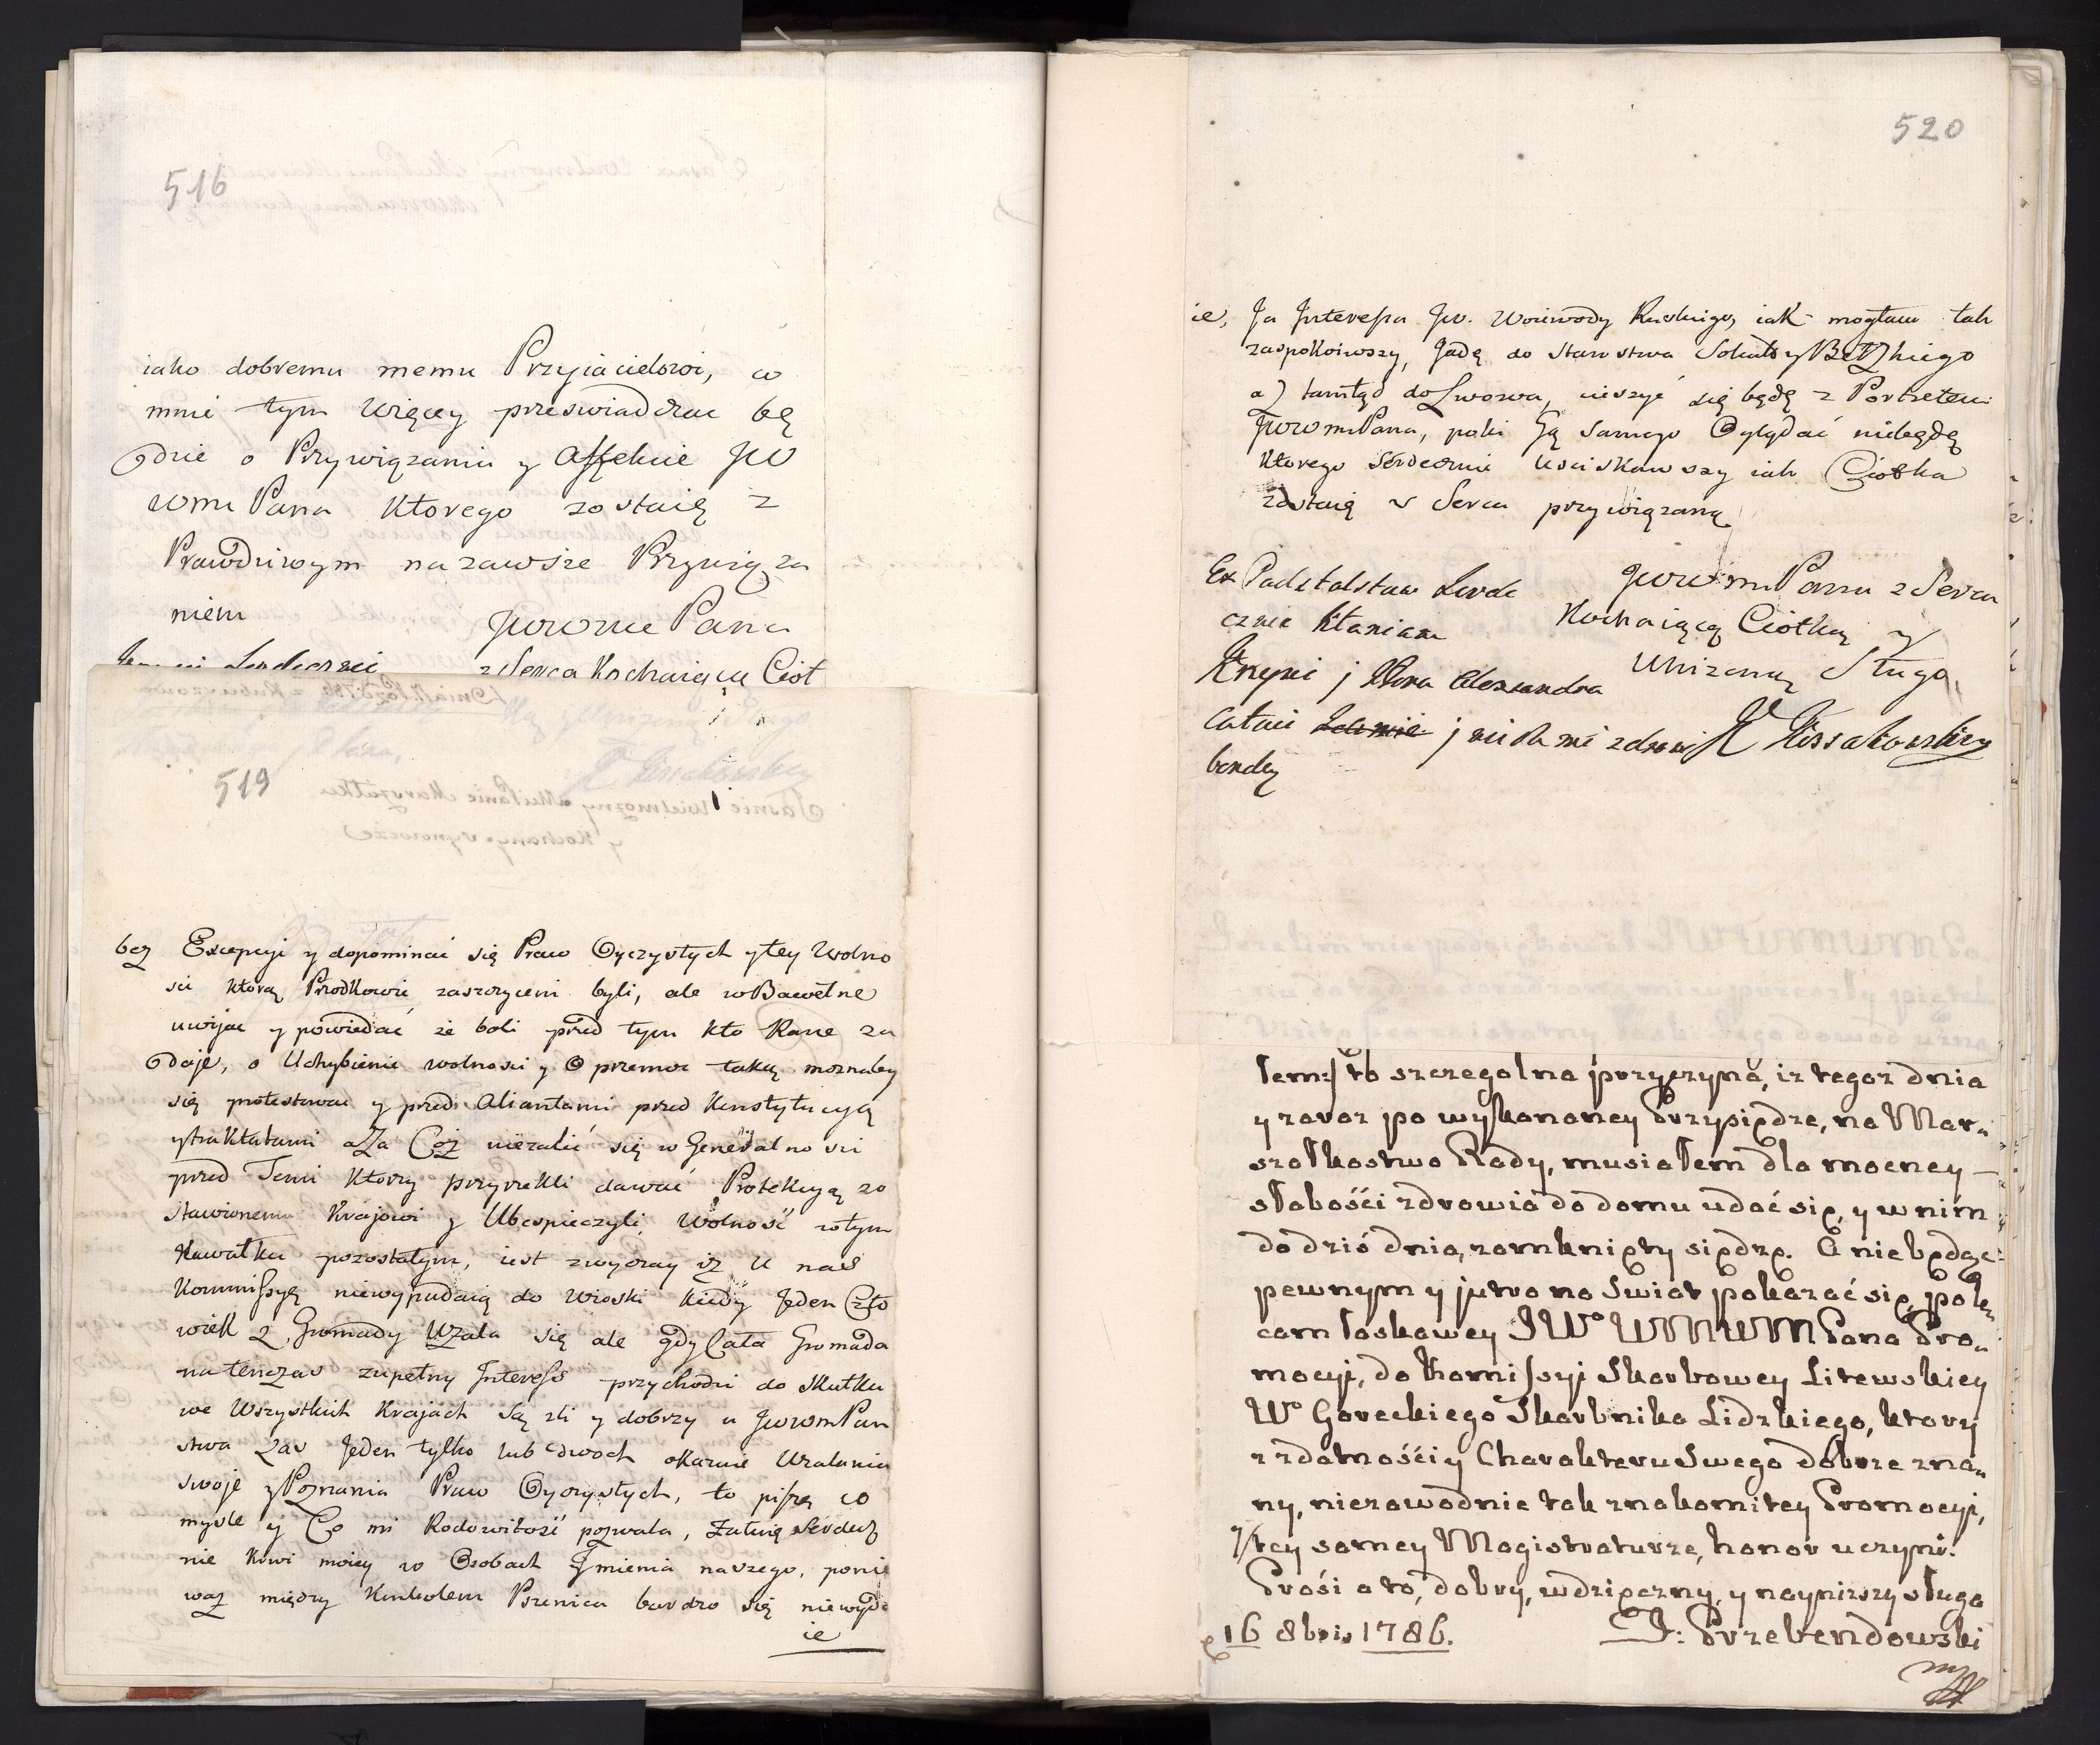 516
iako dobremu memu Przyiacielowi, co
mnie tym więcey przeswiadczac bę
dzie o Przywiązaniu y Affekcie JW
WMPana Ktorego zostaię z
Prawdziwym na zawsze Przywiąza
niem
JWWMPana
z Serca Kochaiącą Ciot
519
bez Excepcyi y dopominać się Praw Oyczystych y tey Wolno
sci ktorą Przodkowie zaszczyceni byli, ale w Bawełnę
uwijac y powiedać że boli przed tym kto Rane za
daje, o Uchybienie wolnosci y o przemoc taką moznaby
się protestowac y przed Aliantami przed Konstytucyą
y traktatami a Za Coż nieżalić się w Generalnosci
przed Temi Ktorzy przyrzekli dawać Protekcyą zo
stawionemu Krajowi y Ubespieczyli Wolność w tym
Kawałku pozostałym, iest zwyczay iż u nas
Kommissyę niewypadaią do Wioski kiedy Jeden Czło
wiek z Gromady Użala się ale gdy Cała Gromada
natenczas zupełny Interess przychodzi do Skutku
we Wszystkich Krajach są zli y dobrzy u JWWMPan
stwa zas Jeden tylko lub dwoch okazuie Uzalenia
swoje y Poznania Praw Oyczystych, to piszę co
mysle y Co mi Rodowitość pozwala, żałuię serdecz
nie krwi moiey w Osobach Jmienia naszego, ponie
waż między Kąkolem Pszenica bardzo się niewyda
ie
520
ie, Ja Interessa JW. Woiewody Ruskiego, iak mogłam tak
zaspokoiwszy, Jadę do Starostwa Sokals y Bełzkiego
a) tamtąd do Lwowa, cieszyć się będę z Portretem
JWWMPana, poki Ją samego Oglądać niebędę
Ktorego serdecznie uściskawszy iak Ciotka
zostaię z Serca przywiązaną
JWWMPana z Serca
Kochaiącą Ciotką y
Unizoną Sługą
K Kossakowska
Ex Podstolstwu Serde
cznie kłaniam
Krzysi j Alexandra
całuie j niech mi zdrowi
bendą
łem: to szczegolna przyczyna, iz tegoz dnia
y zaraz po wykonaney Przysiędze, na Mar„
szałkostwo Rady, musiałem dla mocney –
słabości zdrowia do domu udać się, y w nim
do dziś dnia, zamknięty siędzę. A niebędąc
pewnym y jutro na Swiat pokazać się, pole„
cam łaskawey JWo WMWM Pana Pro„
mocyi, do Komissyi Skarbowey Litewskiey
Wo Goreckiego Skarbnika Lidzkiego, ktory
z zdatności y Charakteru Swego dobrze zna„
ny, niezawodnie tak znakomitey Promocyi,
y tey samey Magistraturze, honor uczyni.
Prosi o to, dobry, wdzięczny, y nayniższy sługa
16 8bris 1786. J: Przebendowski